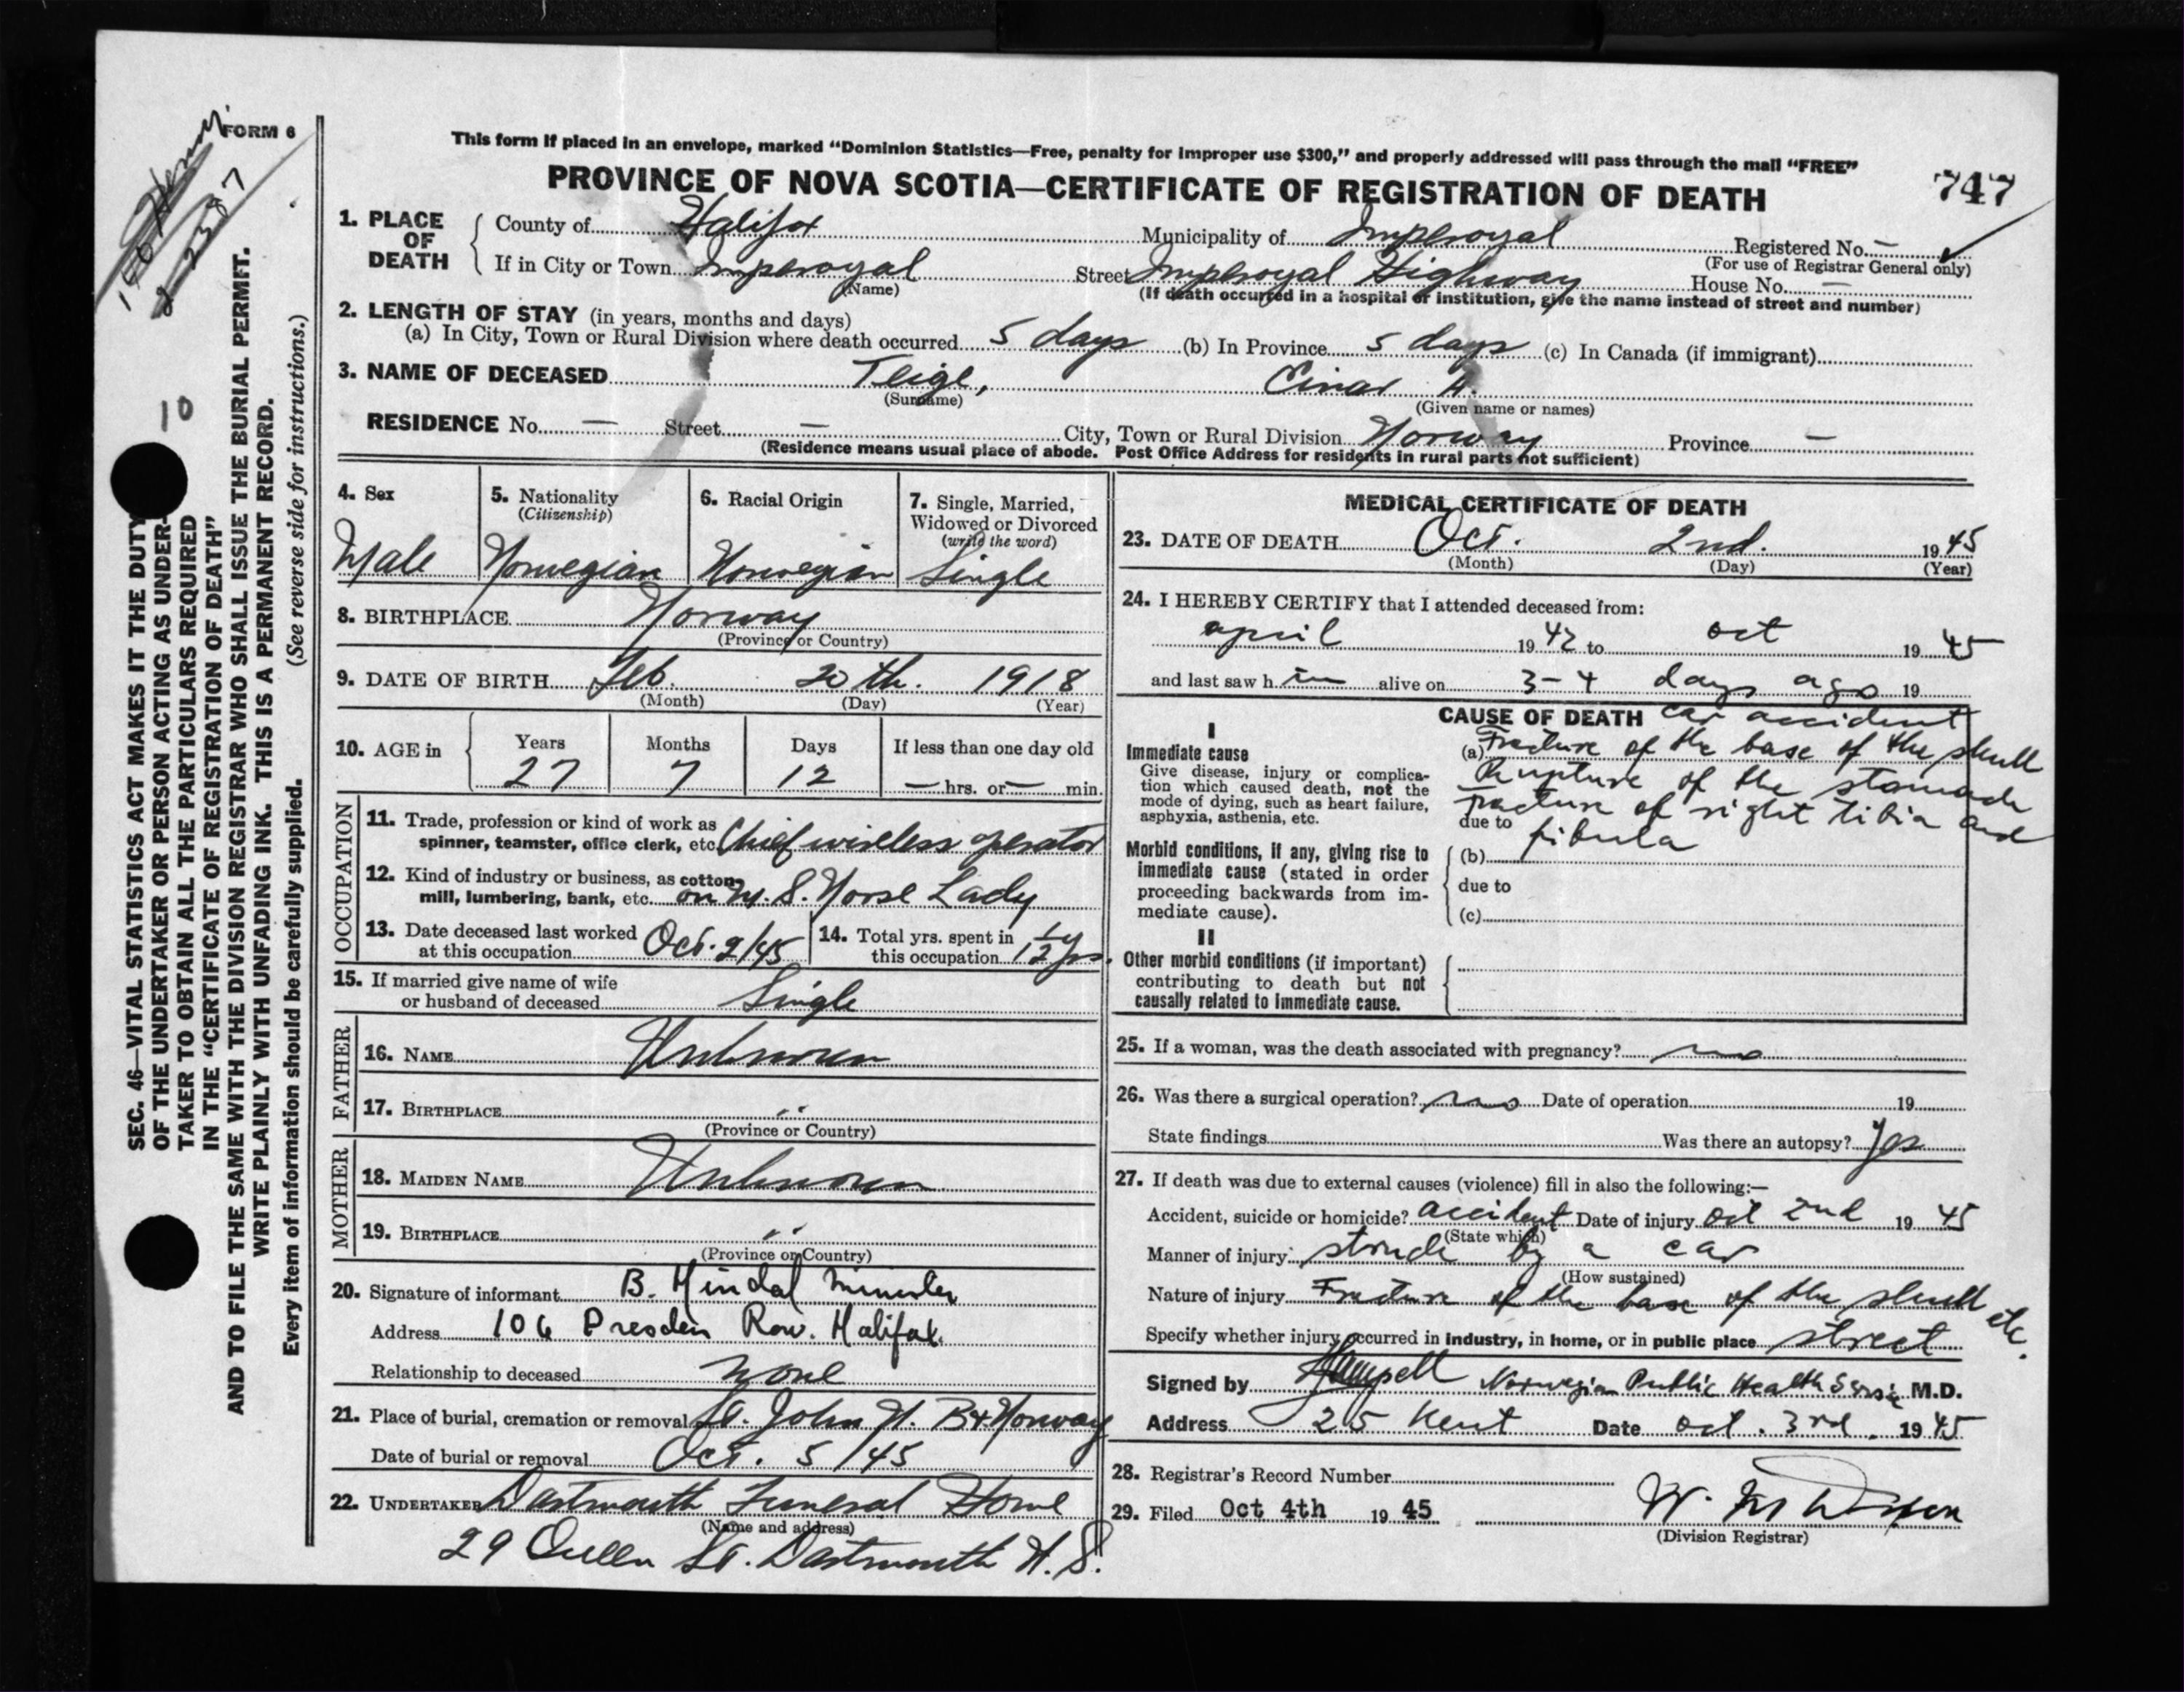 FORM 6
This form if placed in an envelope, marked “Dominion Statistics—Free, penalty for improper use $300,” and properly addressed will pass through the mail “FREE”
PROVINCE OF NOVA SCOTIA—CERTIFICATE OF REGISTRATION OF DEATH
747
1. PLACE OF DEATH
County of Halifax Municipality of Imperoyal Registered No. —
(For use of Registrar General only)
If in City or Town Imperoyal Street Imperoyal Highway House No. —
(Name) (If death occurred in a hospital or institution, give the name instead of street and number)
2. LENGTH OF STAY (in years, months and days)
(a) In City, Town or Rural Division where death occurred 5 days (b) In Province 5 days (c) In Canada (if immigrant)
3. NAME OF DECEASED Teige, Einar A.
(Surname) (Given name or names)
RESIDENCE No. — Street — City, Town or Rural Division Norway Province —
(Residence means usual place of abode. Post Office Address for residents in rural parts not sufficient)
4. Sex
Male
5. Nationality
(Citizenship)
Norwegian
6. Racial Origin
Norwegian
7. Single, Married,
Widowed or Divorced
(write the word)
Single
8. BIRTHPLACE Norway
(Province or Country)
9. DATE OF BIRTH Feb. 20th. 1918
(Month) (Day) (Year)
10. AGE in
Years Months Days If less than one day old
27 7 12 — hrs. or — min.
OCCUPATION
11. Trade, profession or kind of work as
spinner, teamster, office clerk, etc. Chief wireless operator
12. Kind of industry or business, as cotton-
mill, lumbering, bank, etc. on M.S. Norse Lady
13. Date deceased last worked
at this occupation Oct. 2/45
14. Total yrs. spent in
this occupation 1 1/2 yrs.
15. If married give name of wife
or husband of deceased Single
FATHER
16. NAME Unknown
17. BIRTHPLACE "
(Province or Country)
MOTHER
18. MAIDEN NAME Unknown
19. BIRTHPLACE "
(Province or Country)
20. Signature of informant B. Hindal
Address 106 Dresden Row. Halifax.
Relationship to deceased none
21. Place of burial, cremation or removal St. John N. B & Norway
Date of burial or removal Oct. 5/45
22. UNDERTAKER Dartmouth Funeral Home
(Name and address)
29 Queen St. Dartmouth N.S.
MEDICAL CERTIFICATE OF DEATH
23. DATE OF DEATH Oct. 2nd. 1945
(Month) (Day) (Year)
24. I HEREBY CERTIFY that I attended deceased from:
april 1942 to oct 1945
and last saw h im alive on 3-4 days ago 19
CAUSE OF DEATH car accident
I
Immediate cause
Give disease, injury or complica-
tion which caused death, not the
mode of dying, such as heart failure,
asphyxia, asthenia, etc.
(a) Fracture of the base of the skull
Rupture of the stomach
Fracture of right tibia and
due to fibula
Morbid conditions, if any, giving rise to
immediate cause (stated in order
proceeding backwards from im-
mediate cause).
(b)
due to
(c)
II
Other morbid conditions (if important)
contributing to death but not
causally related to immediate cause.
25. If a woman, was the death associated with pregnancy? no
26. Was there a surgical operation? no Date of operation 19
State findings Was there an autopsy? yes
27. If death was due to external causes (violence) fill in also the following:—
Accident, suicide or homicide? accident Date of injury Oct 2nd 1945
(State which)
Manner of injury struck by a car
(How sustained)
Nature of injury Fracture of the base of the skull etc.
Specify whether injury occurred in industry, in home, or in public place street
Signed by Norwegian Public Health M.D.
Address 25 Kent Date oct. 3rd. 1945
28. Registrar's Record Number
29. Filed Oct 4th 1945
(Division Registrar)
SEC. 46—VITAL STATISTICS ACT MAKES IT THE DUTY
OF THE UNDERTAKER OR PERSON ACTING AS UNDER-
TAKER TO OBTAIN ALL THE PARTICULARS REQUIRED
IN THE “CERTIFICATE OF REGISTRATION OF DEATH”
AND TO FILE THE SAME WITH THE DIVISION REGISTRAR WHO SHALL ISSUE THE BURIAL PERMIT.
WRITE PLAINLY WITH UNFADING INK. THIS IS A PERMANENT RECORD.
Every item of information should be carefully supplied. (See reverse side for instructions.)
10